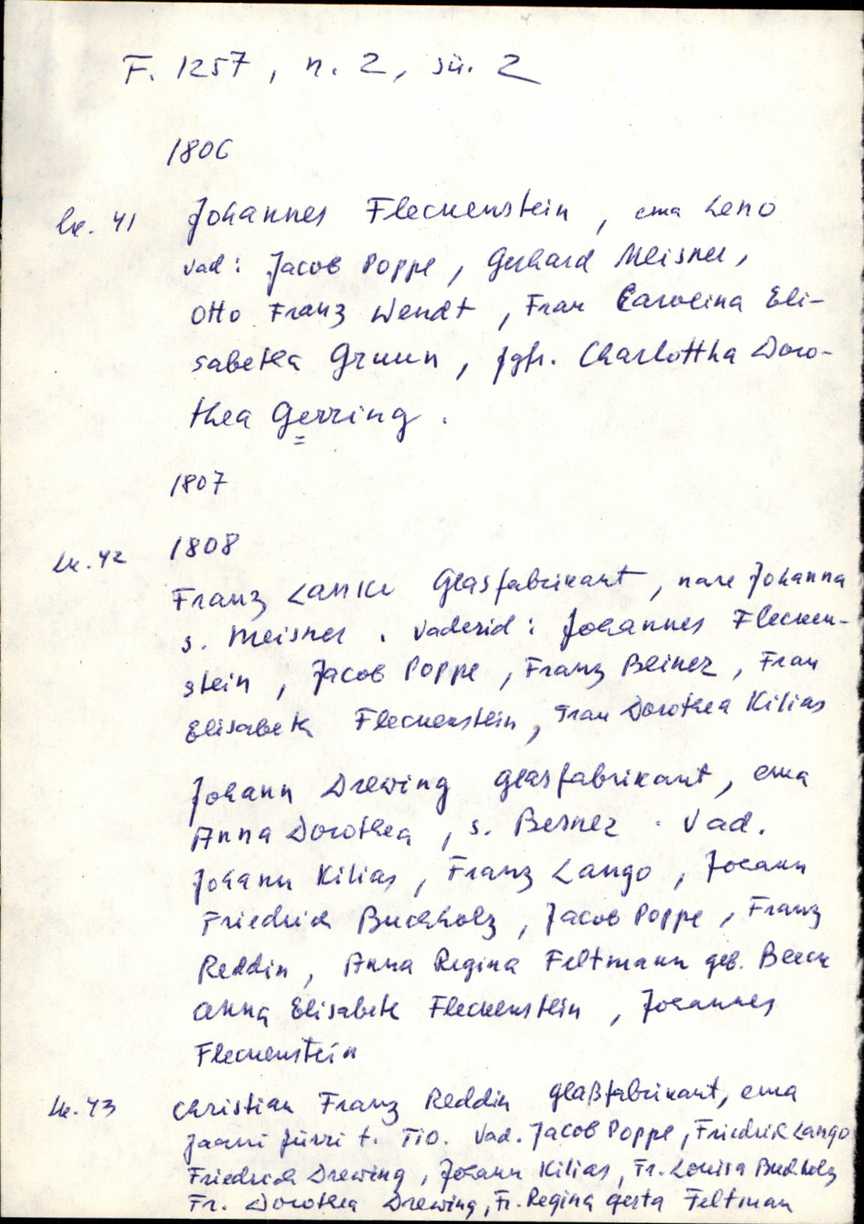 F. 1257, n. 2, sü. 2
1806
lk. 41 Johannes Fleckenstein, ema Leno
vad: Jacob Poppe, Gerhard Meisner,
Otto Franz Wendt, Frau Carolina Eli-
sabetha Gruun, jgfr. Charlottha Doro-
thea Gerring.
1807
lk. 42 1808
Franz Glasfabrikant, nare Johanna
s. Meisner. Vaderid: Johannes Flecken-
stein, Jacob Poppe, Franz Beiner, Frau
Elisabeth Fleckenstein, Frau Dorothea Kilias
Johann Drewing glasfabrikant, ema
Anna Dorothea, s. Besner. Vad.
Johann Kilias, Franz Lango, Johann
Friedrich Buchholz, Jacob Poppe, Franz
Reddin, Anna Regina Feltmann geb. Beeck
Anna Elisabeth Fleckenstein, Johannes
Fleckenstein
lk. 43 Christian Franz Reddin glaßfabrikant, ema
Jaani Jürri t. Tio. Vad. Jacob Poppe, Friedrich Lango
Friedrich Drewing, Johann Kilias, Fr. Louisa Buchholz
Fr. Dorothea Drewing, Fr. Regina Gerta Feltman